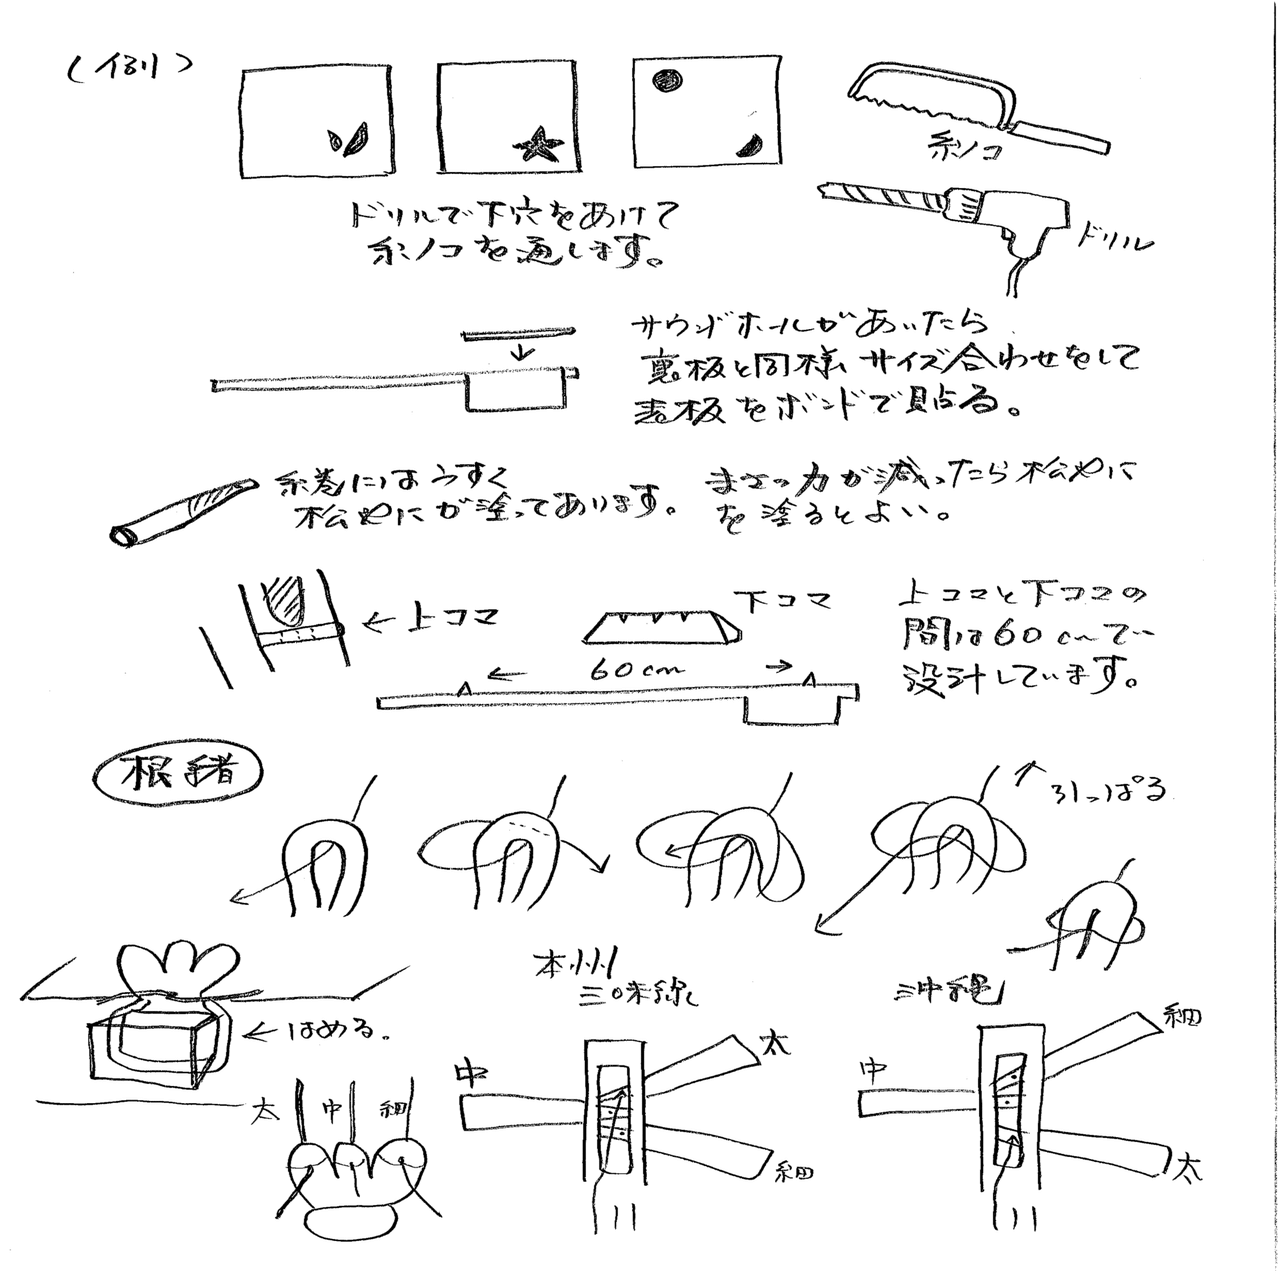 (例)
糸ノコ
ドリルで下穴をあけて
糸ノコを通します。
ドリル
サウンドホールがあいたら
裏板と同様サイズ合わせをして
表板をボンドで貼る。
糸巻にはうすく
松やにが塗ってあります。
まさつ力が減ったら松やに
を塗るとよい。
←上コマ
下コマ
← 60cm →
上コマと下コマの
間は60cmで
設計しています。
根緒
引っぱる
←はめる.
太 中 細
本州
三味線
中
太
細
沖縄
中
細
太